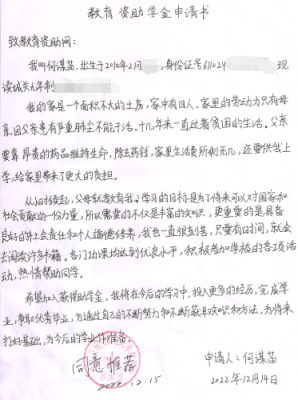 教育资助学金申请书
致教育资助网：
我叫何谋苗，出生于2010年2月，身份证号611024现
读城关九年制
我的家是一个面积不大的土房，家中有四人。家里的劳动力只有母
亲，因父亲患有严重肺尘不能干活。十几年来一直过着贫困的生活。父亲
要靠昂贵的药品维持生命，除去药钱，家里生活费所剩无几，还要供我上
学，给家里带来了更大的负担。
从小时候起，父母就教育我。学习的目标是为了将来可以对国家和
社会贡献的一份力量，所以需要的不仅是丰富的知识，更重要的是具备
良好的社会责任和个人道德修养，我也一直很刻苦，只要有时间，就会
去阅读许多书籍。各门功课均达到优良水平，积极参加学校的各项活
动，热情帮助同学。
希望加入获得助学金，我将在今后的学习中，投入更多的经历，完成学
业，争取优秀毕业，为通过自己的不断努力和不断获取知识和方法，为将来
打好基础，为今后的学业作准备。
同意推荐
2022.12.15
申请人：何谋苗
2022年12月14日